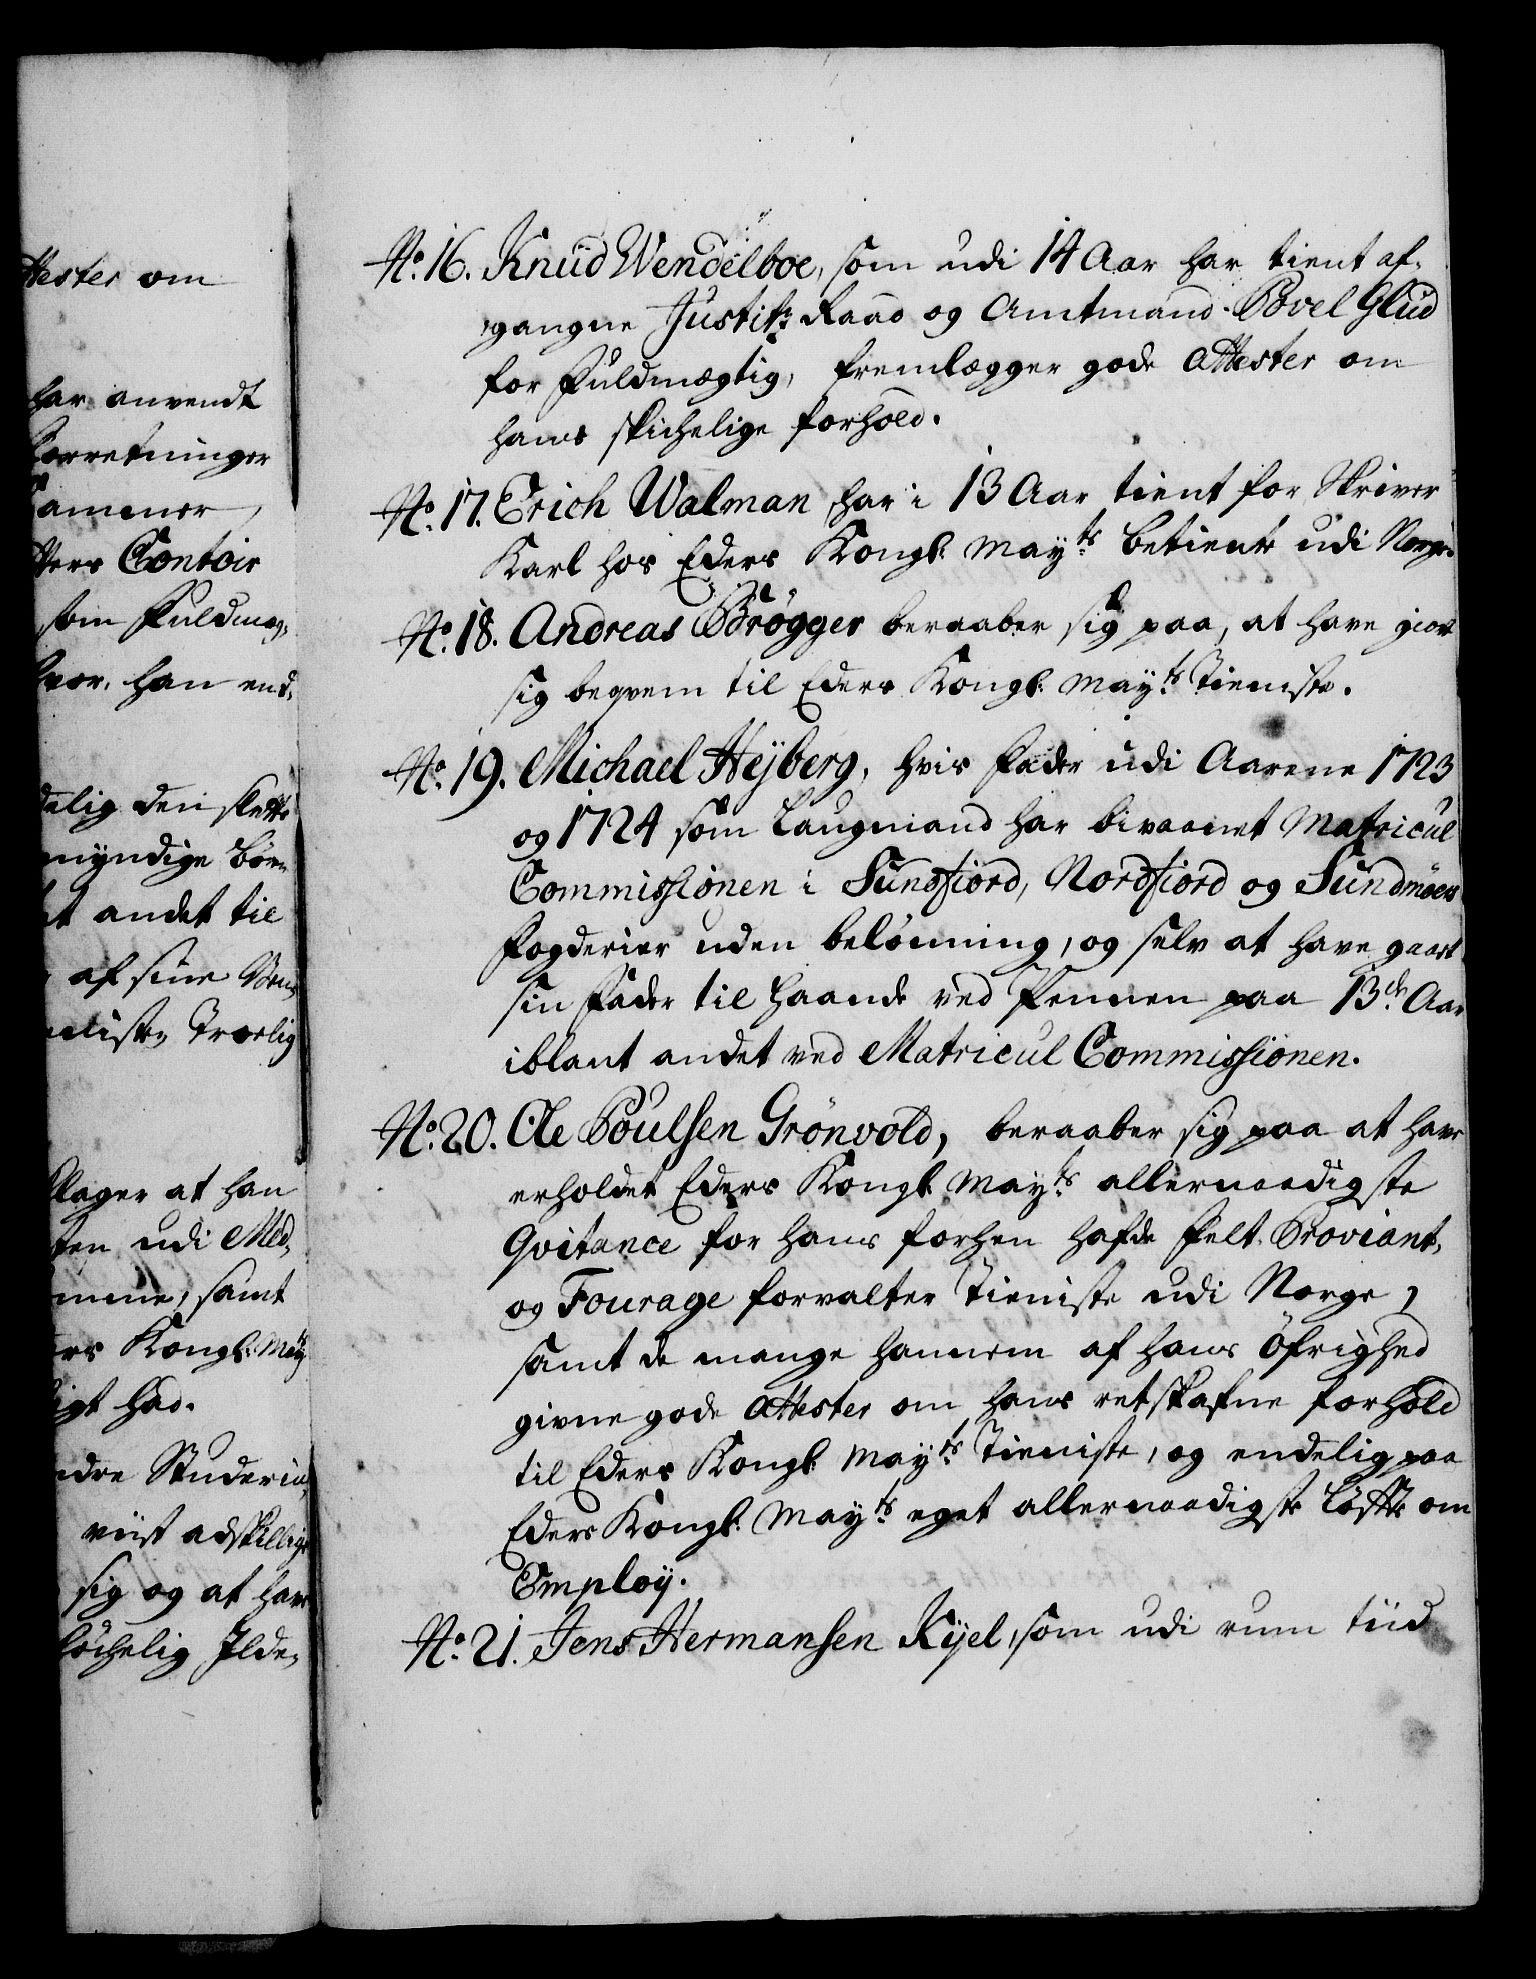 ttester om
har anvendt
forretninger
Cammer
tters Contoir
som Fuldmæg,
hvor han end,
delig den slette
myndige börn
et andet til
af sine Ven
eniste Troelig
klager at han
ten udi Med,
omme, samt
ers Kongl: May
igt had.
ndre Studerin,
viist adskillige
sig og at have
löchelig Ilde,
No. 16. Knud Wendelboe, som udi 14 Aar har tient af,
gangne Justitz Raad og Amtmand Povel Glud
for Fuldmægtig, fremlægger gode attester om
hans skichelige forhold.
No. 17. Erich Walman har i 13 Aar tient for Skriver
Karl hos Eders Kongl: Mayts betiente udi Norge.
No. 18. Andreas Brøgger beraaber sig paa, at have giort
sig beqvem til Eders Kongl: Mayts Tieniste.
No. 19. Michael Heÿberg, hvis Fader udi Aarene 1723
og 1724 som Laugmand har bivaanet Matricul
Commissionen i Sundfiord, Nordfiord og Sundmöers
Fogderier uden belönning, og selv at have gaaet
sin Fader til haande ved Pennen paa 13de Aar
iblant andet ved Matricul Commissionen.
No. 20. Ole Poulsen Grönvold, beraaber sig paa at have
erholdet Eders Kongl: Mayts allernaadigste
Qvitance for hans forhen hafde Felt Proviant,
og Fourage forvalter Tieniste udi Norge,
samt de mange hannem af hans Öfrighed
givne gode attester om hans retskafne forhold
til Eders Kongl: Mayts Tieniste, og endelig paa
Eders Kongl: Mayts eget allernaadigste löffte om
Employ.
No. 21. Jens Hermansen Kijel, som udi rum tiid